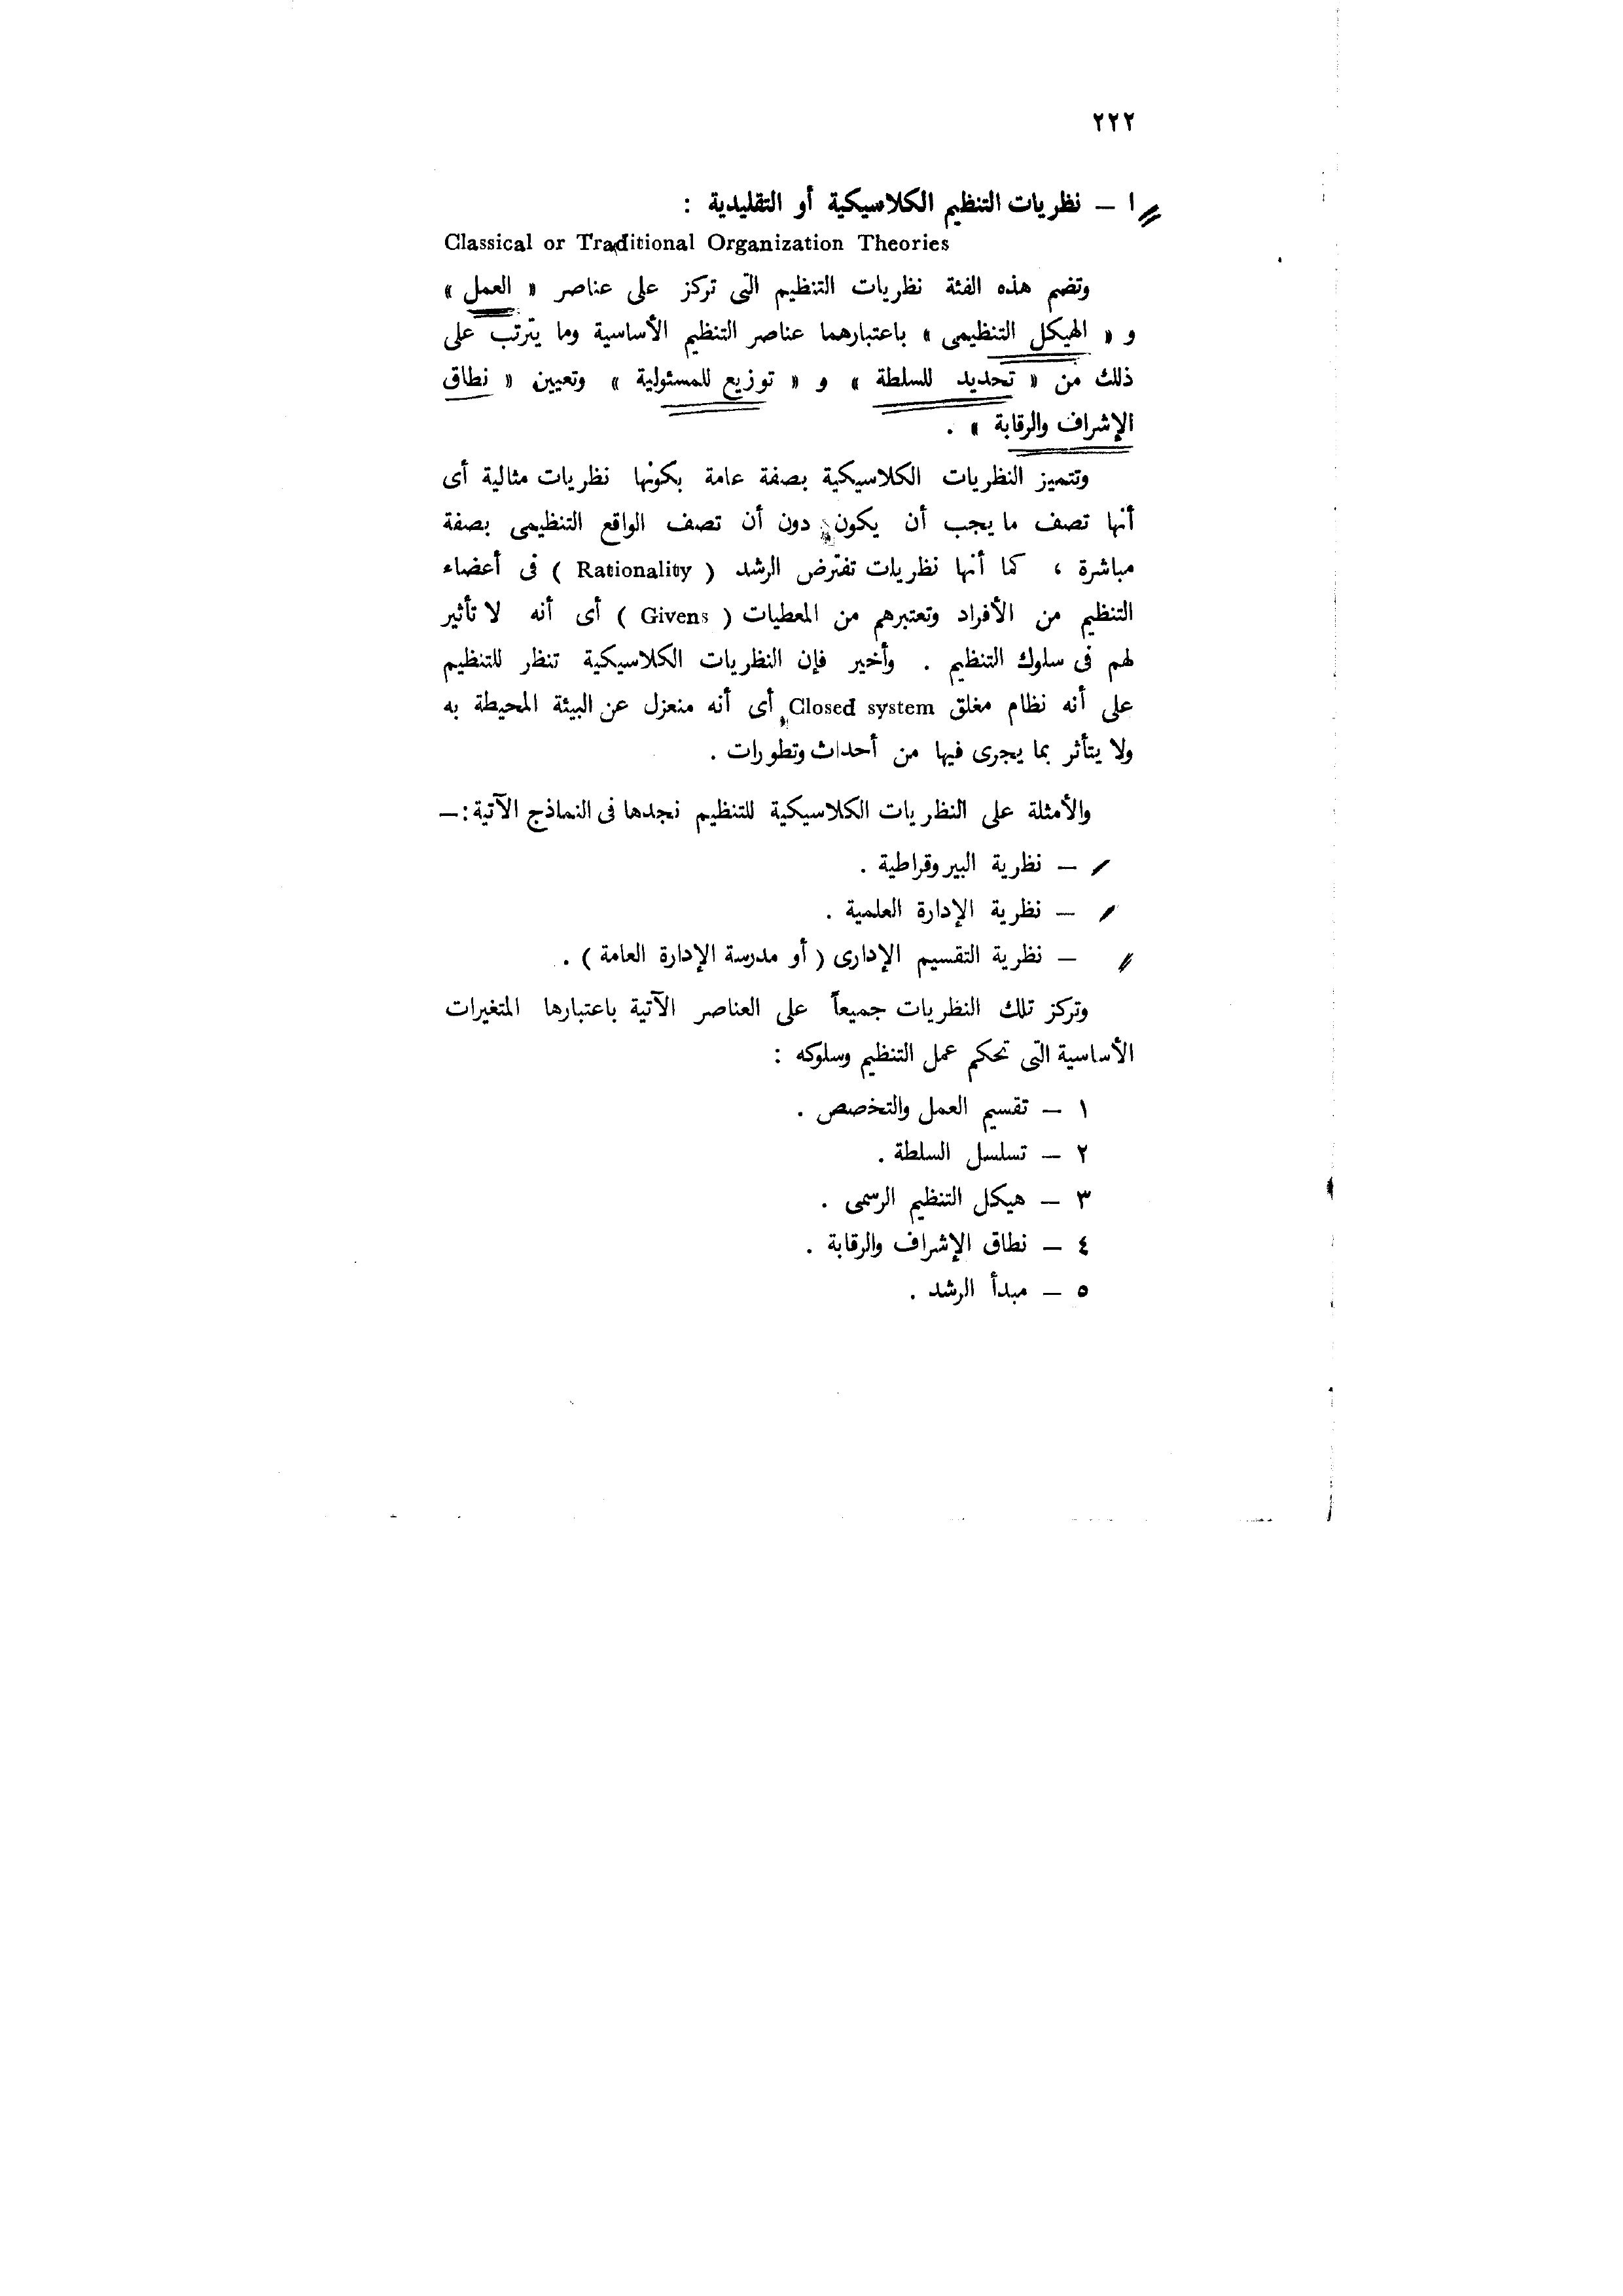 ٢٢٢
١ — نظريات التنظيم الكلاسيكية أو التقليدية :
Classical or Traditional Organization Theories
وتضم هذه الفئة نظريات التنظيم التى تركز على عناصر « العمل »
و « الهيكل التنظيمى » باعتبارهما عناصر التنظيم الأساسية وما يترتب على
ذلك من « تحديد للسلطة » و « توزيع للمسئولية » وتعيين « نطاق
الإشراف والرقابة » .
وتتميز النظريات الكلاسيكية بصفة عامة بكونها نظريات مثالية أى
أنها تصف ما يجب أن يكون دون أن تصف الواقع التنظيمى بصفة
مباشرة ، كما أنها نظريات تفترض الرشد ( Rationality ) فى أعضاء
التنظيم من الأفراد وتعتبرهم من المعطيات ( Givens ) أى أنه لا تأثير
لهم فى سلوك التنظيم . وأخير فإن النظريات الكلاسيكية تنظر للتنظيم
على أنه نظام مغلق Closed system أى أنه منعزل عن البيئة المحيطة به
ولا يتأثر بما يجرى فيها من أحداث وتطورات .
والأمثلة على النظريات الكلاسيكية للتنظيم نجدها فى النماذج الآتية :—
— نظرية البيروقراطية .
— نظرية الإدارة العلمية .
— نظرية التقسيم الإدارى ( أو مدرسة الإدارة العامة ) .
وتركز تلك النظريات جميعاً على العناصر الآتية باعتبارها المتغيرات
الأساسية التى تحكم عمل التنظيم وسلوكه :
١ — تقسيم العمل والتخصص .
٢ — تسلسل السلطة .
٣ — هيكل التنظيم الرسمى .
٤ — نطاق الإشراف والرقابة .
٥ — مبدأ الرشد .